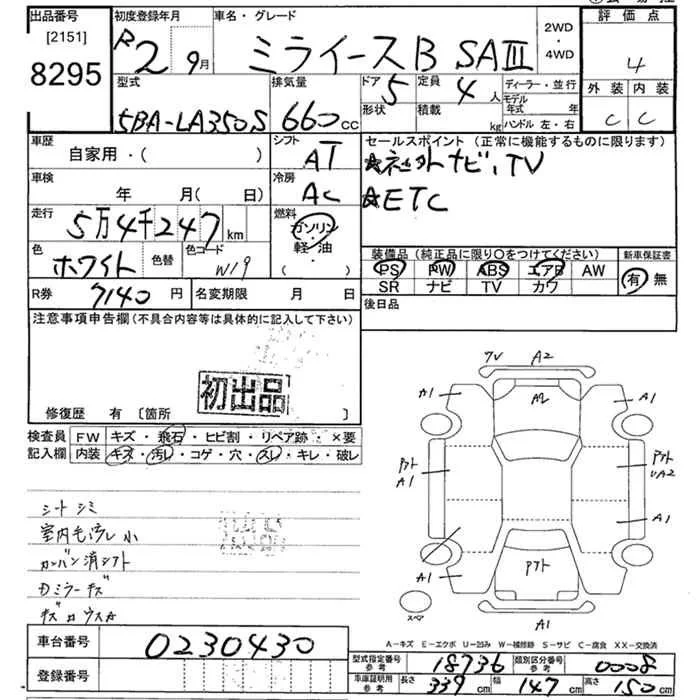 出品番号
[2151]
8295
初度登録年月
R2 9月
車名・グレード
ミライース B SAIII
2WD
・
4WD
評価点
4
外装 内装
C C
型式
5BA-LA350S
排気量
660 CC
ドア
5
形状
定員
4 人
積載
kg
ディーラー・並行
モデル年式 年
ハンドル 左・右
車歴
自家用・( )
シフト
AT
セールスポイント(正常に機能するものに限ります)
☆社外ナビ,TV
☆ETC
車検
年 月( 日)
冷房
AC
走行
5万4千247 km
燃料
ガソリン
軽・油
色
ホワイト
色替
色コード
W19
装備品(純正品に限り○をつけてください)
PS PW ABS エアB AW
SR ナビ TV カワ
新車保証書
有 無
R券
7140 円
名変期限 月 日
後日品
注意事項申告欄(不具合内容等は具体的に記入して下さい)
初出品
修復歴 有 [箇所 ]
検査員記入欄
FW キズ・飛石・ヒビ割・リペア跡・×要
内装 キズ・汚レ・コゲ・穴・スレ・キレ・破レ
シート シミ
カンバン消シフト
Dミラーキズ
車台番号
0230430
登録番号
A2
A2
カ1
A1
A1
A1
UA2
A1
A1
A1
スペア
A-キズ E-エクボ U-凹み W-補修跡 S-サビ C-腐食 XX-交換済
型式指定番号
参考
18736
類別区分番号
参考
0008
車庫証明用
参考
長さ 339 cm
幅 147 cm
高さ 150 cm